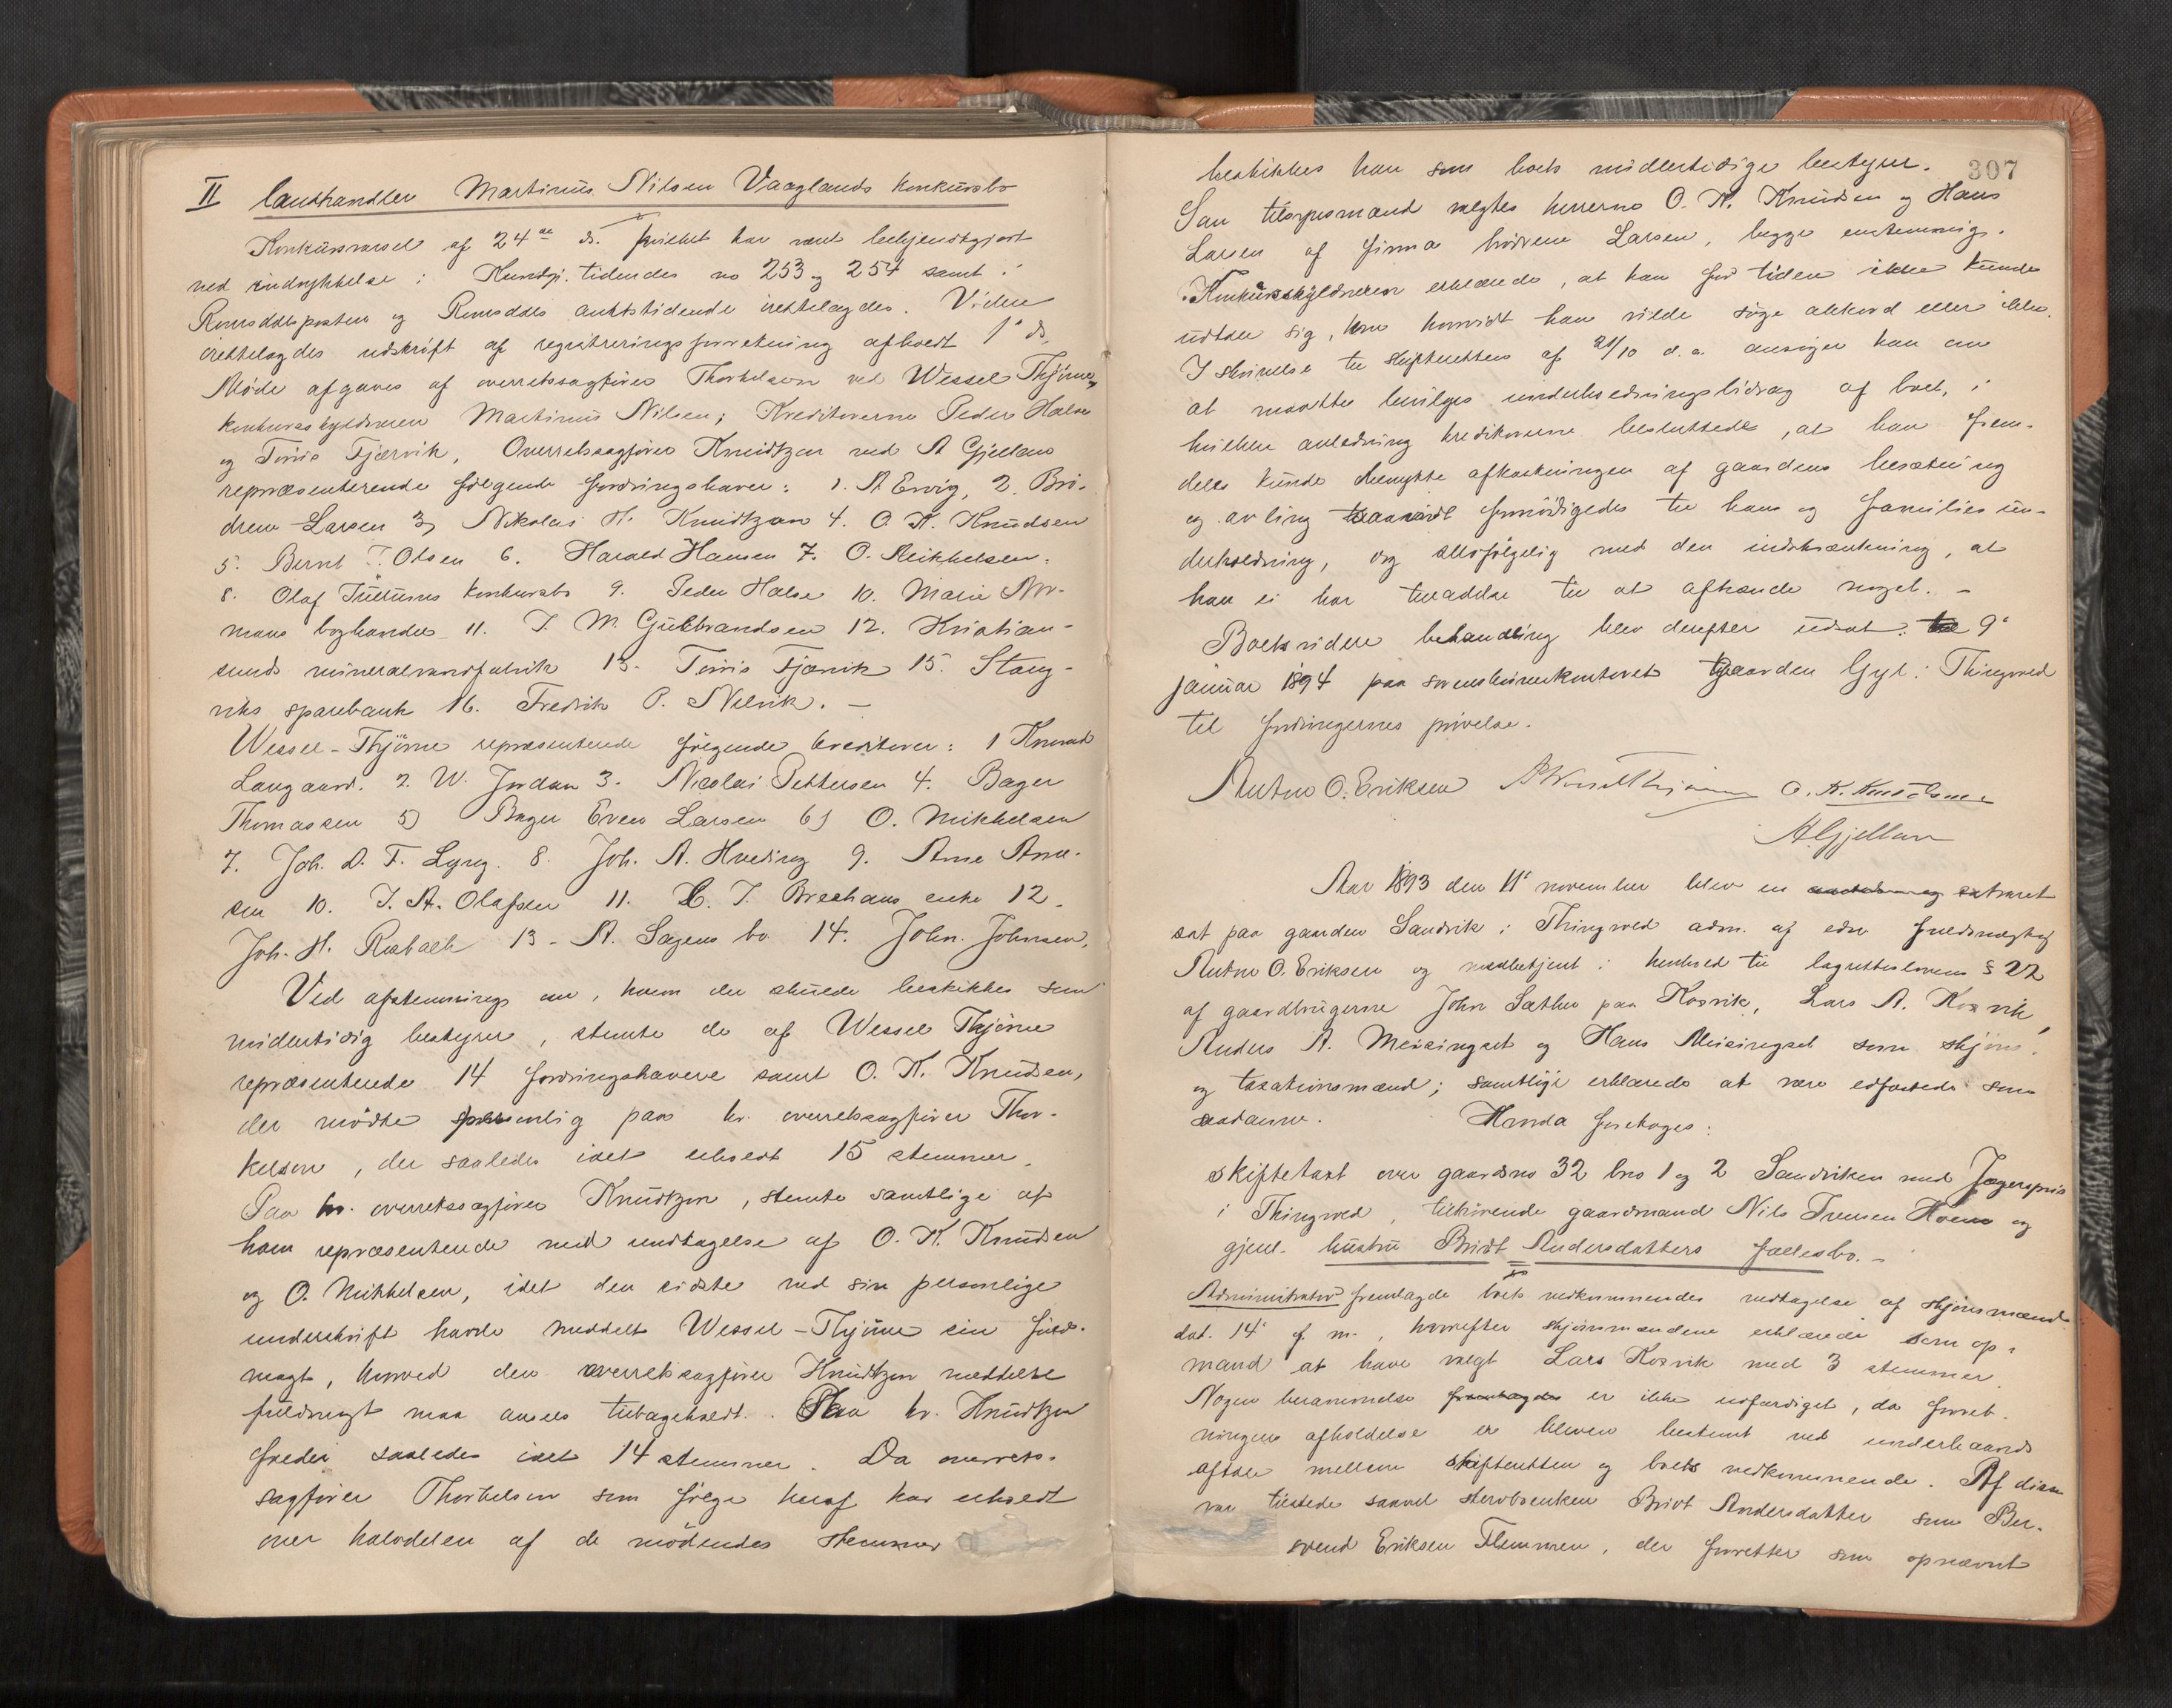 II landhandler Martinus Nilsen Vaaglands konkursbo
Konkursvarsel af 24de ds. hvilket har vært bekjendtgjort
ved indrykkelse i Kundgj. tidendes no 253 og 254 samt i
Romsdalsposten og Romsdals amtstidende irettelagdes. Videre
irettelagdes udskrift af registreringsforretning afholdt 1' ds.
Møde afgaves af overretssagfører Thorkelson ved Wessel Thjøme,
konkursskyldneren Martinus Nilsen; Kreditorerne Peder Halse
og Tøris Fjærvik, Overretssagfører Knudtzon ved A Gjellan
repræsenterende følgende fordringshaver: 1. A Ervig, 2. Brø-
drene Larsen 3) Nikolai H. Knudtzon 4. O. K. Knudsen
5. Bernt T. Olsen 6. Harald Hansen 7. O. Mikkelsen.
8. Olaf konkursbo 9. Peder Halse 10. Marie Nor-
mans boghandel 11. J. M. Gulbrandsen 12. Kristian-
sunds mineralvandfabrik 13. Tøris Fjærvik 15. Stang-
viks sparebank 16. Fredrik P. Nelvik. —
Wessel-Thjøme repræsenterede følgende kreditorer: 1 Konrad
Langaard. 2. W. Jordan 3. Nicolai Pettersen 4. Bager
Thomassen 5) Bager Even Larsen 6) O. Mikkelsen
7. Joh. D. F. Lyng. 8. Joh. A. Hveding 9. Arne Arne-
sen 10. J. A. Olafsen 11. C. J. Brechans enke 12.
Joh. H. Rabach 13. A. Sagens bo 14. John Johnsen.
Ved afstemnings om, hvem der skulde beskikkes som
midlertidig bestyrer, stemte de af Wessel Thjøme
repræsenterede 14 fordringshavere samt O. K. Knudsen,
der mødte personlig paa hr. overretssagfører Thor-
kelson, der saaledes ialt erholdt 15 stemmer.
Paa hr. overretssagfører Knudtzon, stemte samtlige af
ham repræsenterede med undtagelse af O. K. Knudsen
og O. Mikkelsen, idet den sidste ved sin personlige
underskrift havde meddelt Wessel-Thjøme sin fuld-
magt, hvorved den overretssagfører Knudtzon meddelte
fuldmagt maa ansees tilbagekaldt. Paa hr. Knudtzon
faldt saaledes ialt 14 stemmer. Da overrets-
sagfører Thorkelson som følge heraf har erholdt
over halvdelen af de mødendes stemmer
307
beskikkes han som boets midlertidige bestyrer.
Som tilsynsmænd valgtes herrerne O. K. Knudsen og Hans
Larsen af firma brødrene Larsen, begge enstemmig.
Konkursskyldneren erklærede, at han for tiden ikke kunde
udtale sig, om hvorvidt han vilde søge akkord eller ikke.
I skrivelse til skifteretten af 21/10 d. a. ansøger han om
at maatte bevilges underholdningsbidrag af boet, i
hvilken anledning kreditorerne besluttede, at han frem-
deles kunde benytte afkastningen af gaardens besætning
og avling forsaavidt fornødigedes til hans og families un-
derholdning, og selvfølgelig med den indskrænkning, at
han ei har tilladelse til at afhænde noget. —
Boets videre behandling blev derefter udsat til 9'
januar 1894 paa sorenskriverkontoret gaarden Gyl i Thingvold
til fordringernes prøvelse.
Anton O. Eriksen A Wessel Thjøme O. K. Knudsen
A. Gjellan
Aar 1893 den 11' november blev en extraret
sat paa gaarden Sandvik i Thingvold adm. af edsv fuldmægtig
Anton O. Eriksen og medbetjent i henhold til lagrettelovens § 22
af gaardbrugerne John Sæther paa Kosvik, Lars A. Kosvik,
Anders A. Meisingset og Hans Meisingset som skjøns-
og taxationsmænd; samtlige erklærede at være edfæstede som
saadanne. Hvorda foretoges:
skiftetaxt over gaardsno 32 bno 1 og 2 Sandviken med Jægerspris
i Thingvold, tilhørende gaardmand Nils Iversen Hoem og
gjenl. hustru Bridt Andersdatters fællesbo. —
Administrator fremlagde boets vedkommendes vedtagelse af skjønsmænd
dat. 14' f. m., hvorefter skjønsmændene erklærede som op-
mand at have valgt Lars Kosvik med 3 stemmer.
Nogen berammelse fremlagdes er ikke udfærdiget, da forret-
ningens afholdelse er bleven bestemt ved underhaands
aftale mellem skifteretten og boets vedkommende. Af disse
var tilstede saavel stervboenken Bridt Andersdatter som Ber-
svend Eriksen Flemmen, der forretter som opnævnt